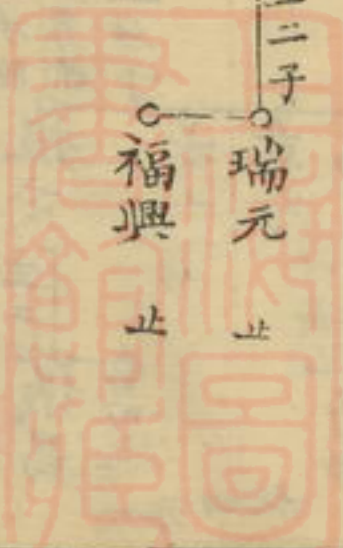 二子
瑞元 止
福興 止